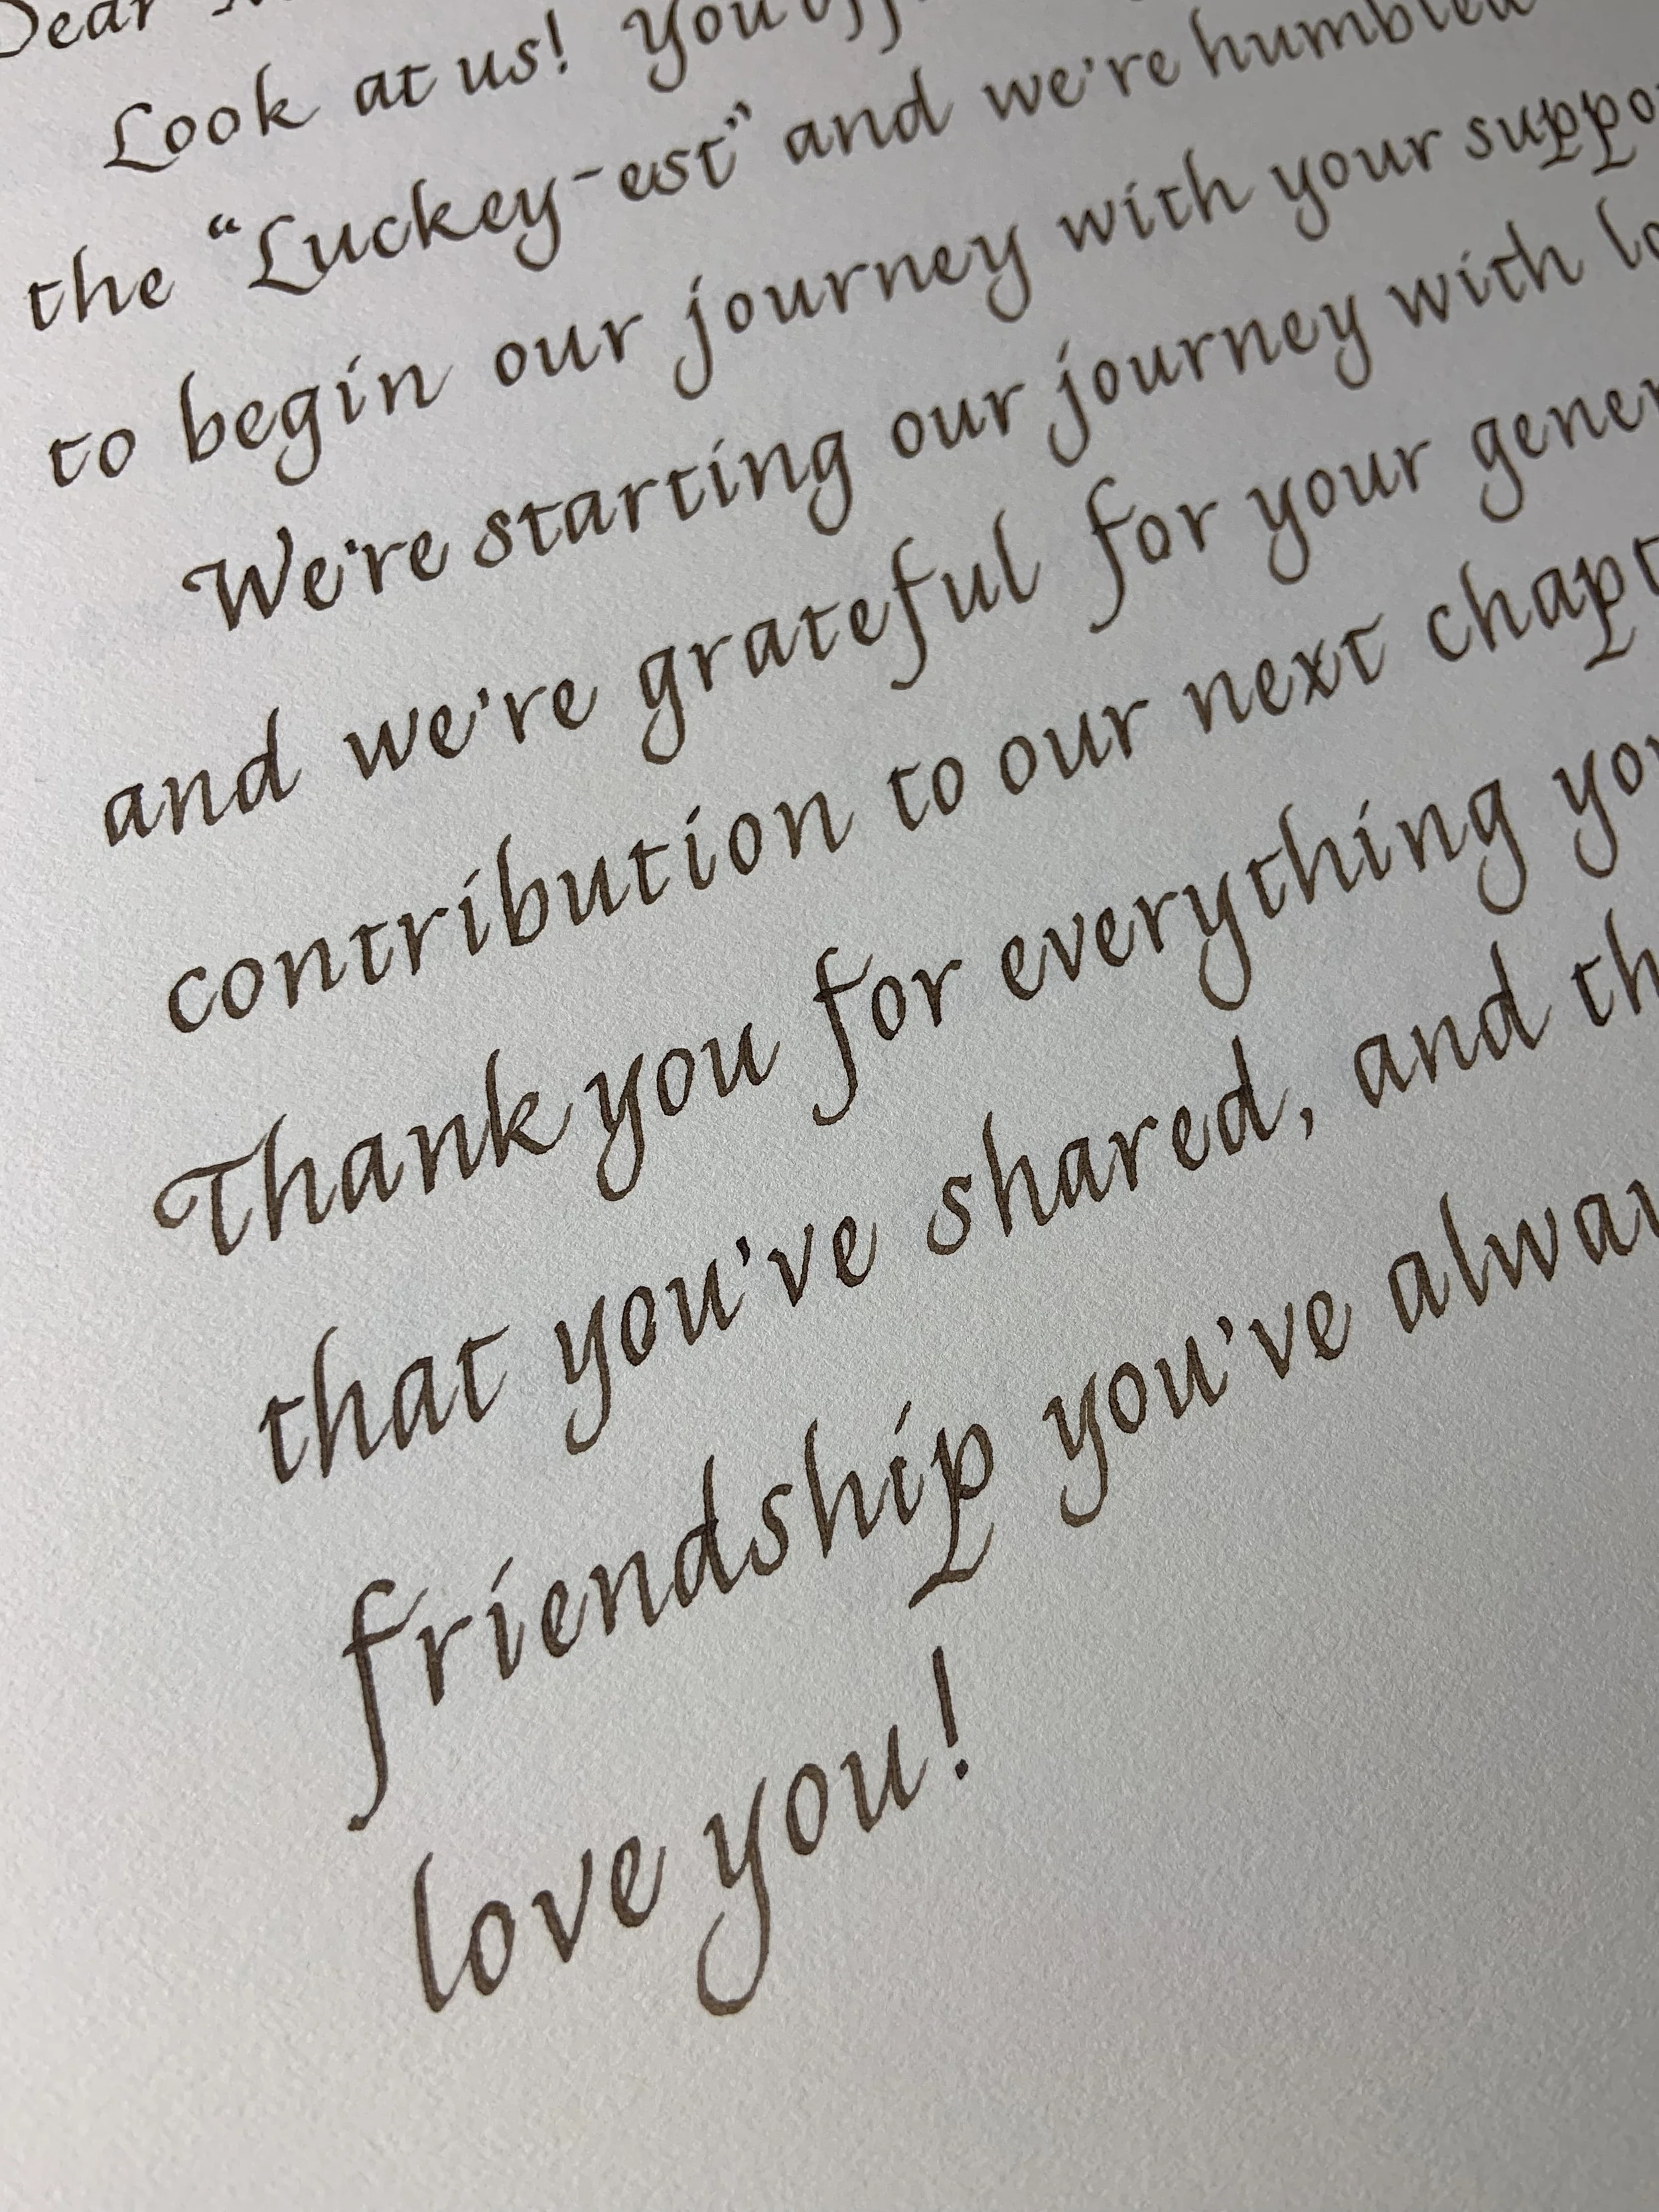 Dear
Look at us! You
the "Luckey-est" and we're humbled
to begin our journey with your
We're starting our journey with
and we're grateful for your
contribution to our next
Thank you for everything
that you've shared, and
friendship you've
love you!